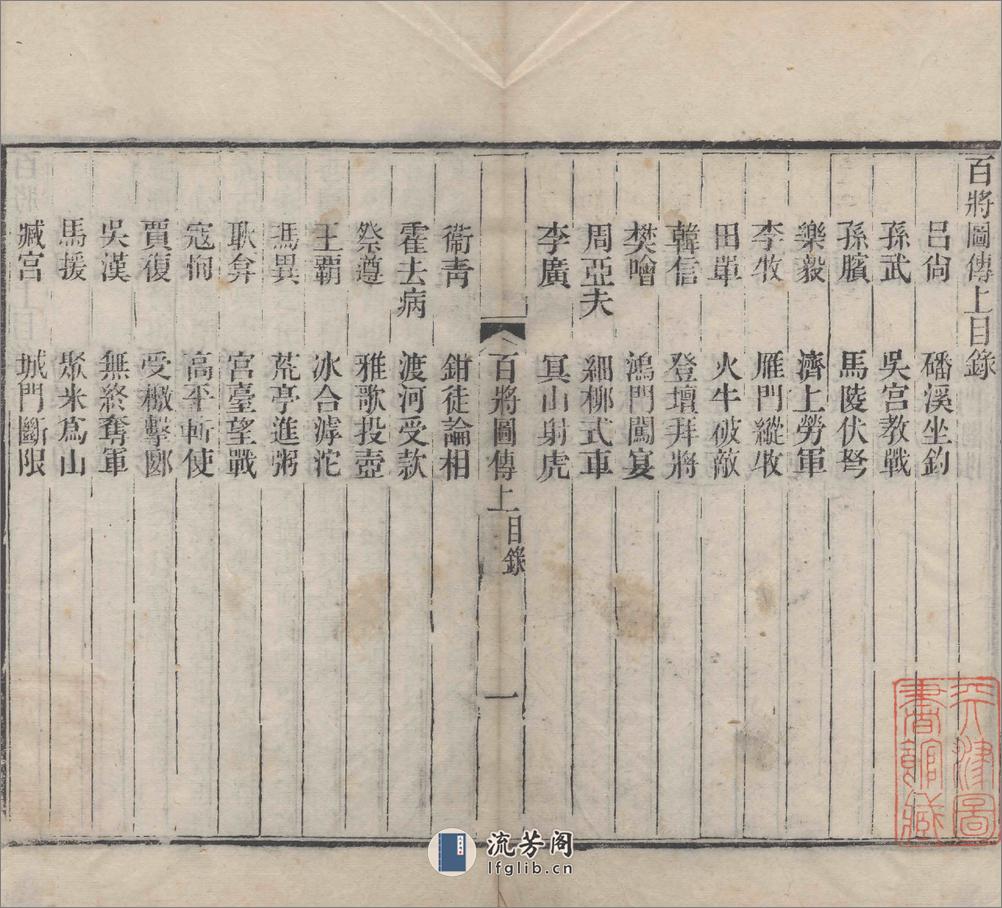 百將圖傳上目錄
呂尙 磻溪坐釣
孫武 吳宮教戰
孫臏 馬陵伏弩
樂毅 濟上勞軍
李牧 雁門縱牧
田單 火牛破敵
韓信 登壇拜將
樊噲 鴻門闖宴
周亞夫 細柳式車
李廣 冥山射虎
百將圖傳上 目錄 一
衞青 鉗徒論相
霍去病 渡河受款
祭遵 雅歌投壺
王霸 冰合滹沱
馮異 荒亭進粥
耿弇 宮臺望戰
寇恂 高平斬使
賈復 受檄擊郾
吳漢 無終奪軍
馬援 聚米爲山
臧宮 城門斷限
天津圖書館藏
流芳阁
lfglib.cn